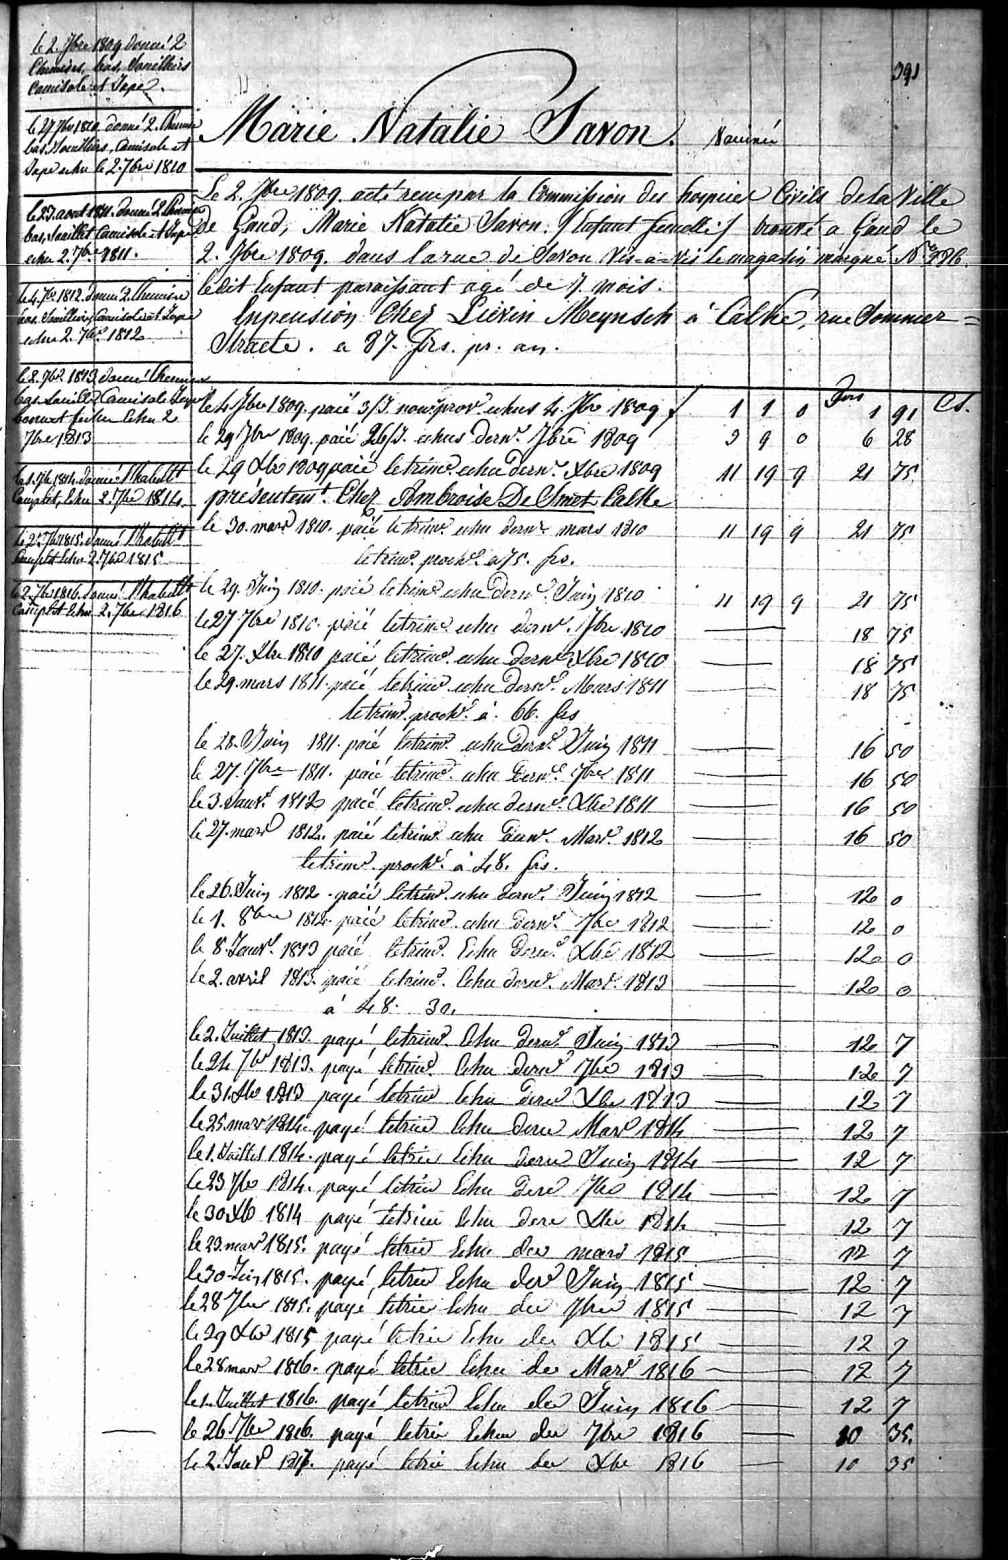 391
Marie Natalie Savon. Vaccinée
le 2. 7bre 1809 donné 2
Chemises, bas, Souilliers
Camisole et Jupe.
le 27. 7bre 1810. donné 2. Chemise
bas, Souilliers, Camisole et
Jupe echu le 2. 7bre 1810
le 23. aout 1811. donné 2 Chemise
bas, Souillet Camisole et Jupe
echu 2. 7bre 1811.
le 4. 7bre 1812. donné 2. Chemise
bas, Souilliers, Camisole et Jupe
echu 2. 7bre 1812
1813 donné Chemises
bas Camisole Jupe
echu 2
7bre 1813
1814. donné l'habillt
Complet, Echu 2. 7bre 1814.
le 2. 7bre 1815. donné l'habillt
Complet Echu 2. 7bre 1815
le 2. 7bre 1816. donné l'habillt
Complet Echu 2. 7bre 1816
Le 2. 7bre 1809. a été reçu par la Commission des hospices Civils de la Ville
de Gand, Marie Natalie Savon. (Enfant femelle) trouvé a Gand le
2. 7bre 1809. dans la rue de Savon Vis-a-vis le magasin marqué No
le dit Enfant paraissant agé de 7 mois.
En pension Chez Liévin Meynsch à Calke, rue Sommer=
Straete. a 87. frs. pr. an.
frs Cs.
le 4 7bre 1809. paié 3/J. nour. prov. echus 4. 7bre 1809 1 1 0 1 91
le 29 7bre 1809. paié 26/J. echus dernr. 7bre 1809 3 9 0 6 28
le 29 Xbre 1809 paié le trime. echu dernr. Xbre 1809 11 19 9 21 75
présentemt. Chez Ambroise De Smet Calke
le 30. mars 1810. paié le trime. echu dernr. mars 1810 11 19 9 21 75
le trime. proche. a 75. frs.
le 29. Juin 1810. paié le trime echu dernr. Juin 1810 11 19 9 21 75
le 27 7bre 1810. paié le trime. echu dernr. 7bre 1810 18 75
le 27. Xbre 1810 paié le trime. echu dernr Xbre 1810 18 75
le 29. mars 1811. paié le trime. echu dernr. Mars 1811 18 75
le trime. proche. à 66. frs
le 28. Juin 1811. paié le trime. echu dernr. Juin 1811 16 50
le 27. 7bre 1811. paié le trime. echu Dernr. 7bre 1811 16 50
le 3. Janvr. 1812 paié le trime. echu dernr. Xbre 1811 16 50
le 27. mars 1812. paié le trime echu Dernr. Mars 1812 16 50
le trime. proche. à 48. frs.
le 26. Juin 1812. paié le trime. echu dernr. Juin 1812 12 0
le 1. 8bre 1812. paié le trime. echu Dernr. 7bre 1812 12 0
le 8. Janvr. 1813 paié le trime. Echu Dernr. Xbre 1812 12 0
le 2. avril 1813. paié le trime. Echu dernr. Mars 1813 12 0
à 48. 30.
le 2. Juillet 1813. payé le trime. Echu dernr. Juin 1813 12 7
le 24 7bre 1813. payé le trime. Echu dernr 7bre 1813 12 7
le 31 Xbre 1813 payé le trime Echu dernr Xbre 1813 12 7
le 25. mars 1814. payé le trime Echu derne Mars 1814 12 7
le 1. Juillet 1814. payé le trime Echu derne Juin 1814 12 7
le 23 7bre 1814. payé le trime Echu derne 7bre 1814 12 7
le 30 Xbre 1814 payé le trime Echu derne Xbre 1814 12 7
le 23. mars 1815. payé le trime Echu der mars 1815 12 7
le 30 Juin 1815. payé le trime Echu der Juin 1815 12 7
le 28 7bre 1815. payé le trime Echu der 7bre 1815 12 7
le 29 Xbre 1815 payé le trime Echu der Xbre 1815 12 7
le 28 mars 1816. payé le trime Echu der Mars 1816 12 7
le 1. Juillet 1816. payé le trime Echu der Juin 1816 12 7
le 26 7bre 1816. payé le trime Echu der 7bre 1816 10 35.
le 2. Janvr 1817. payé le trime Echu der Xbre 1816 10 35